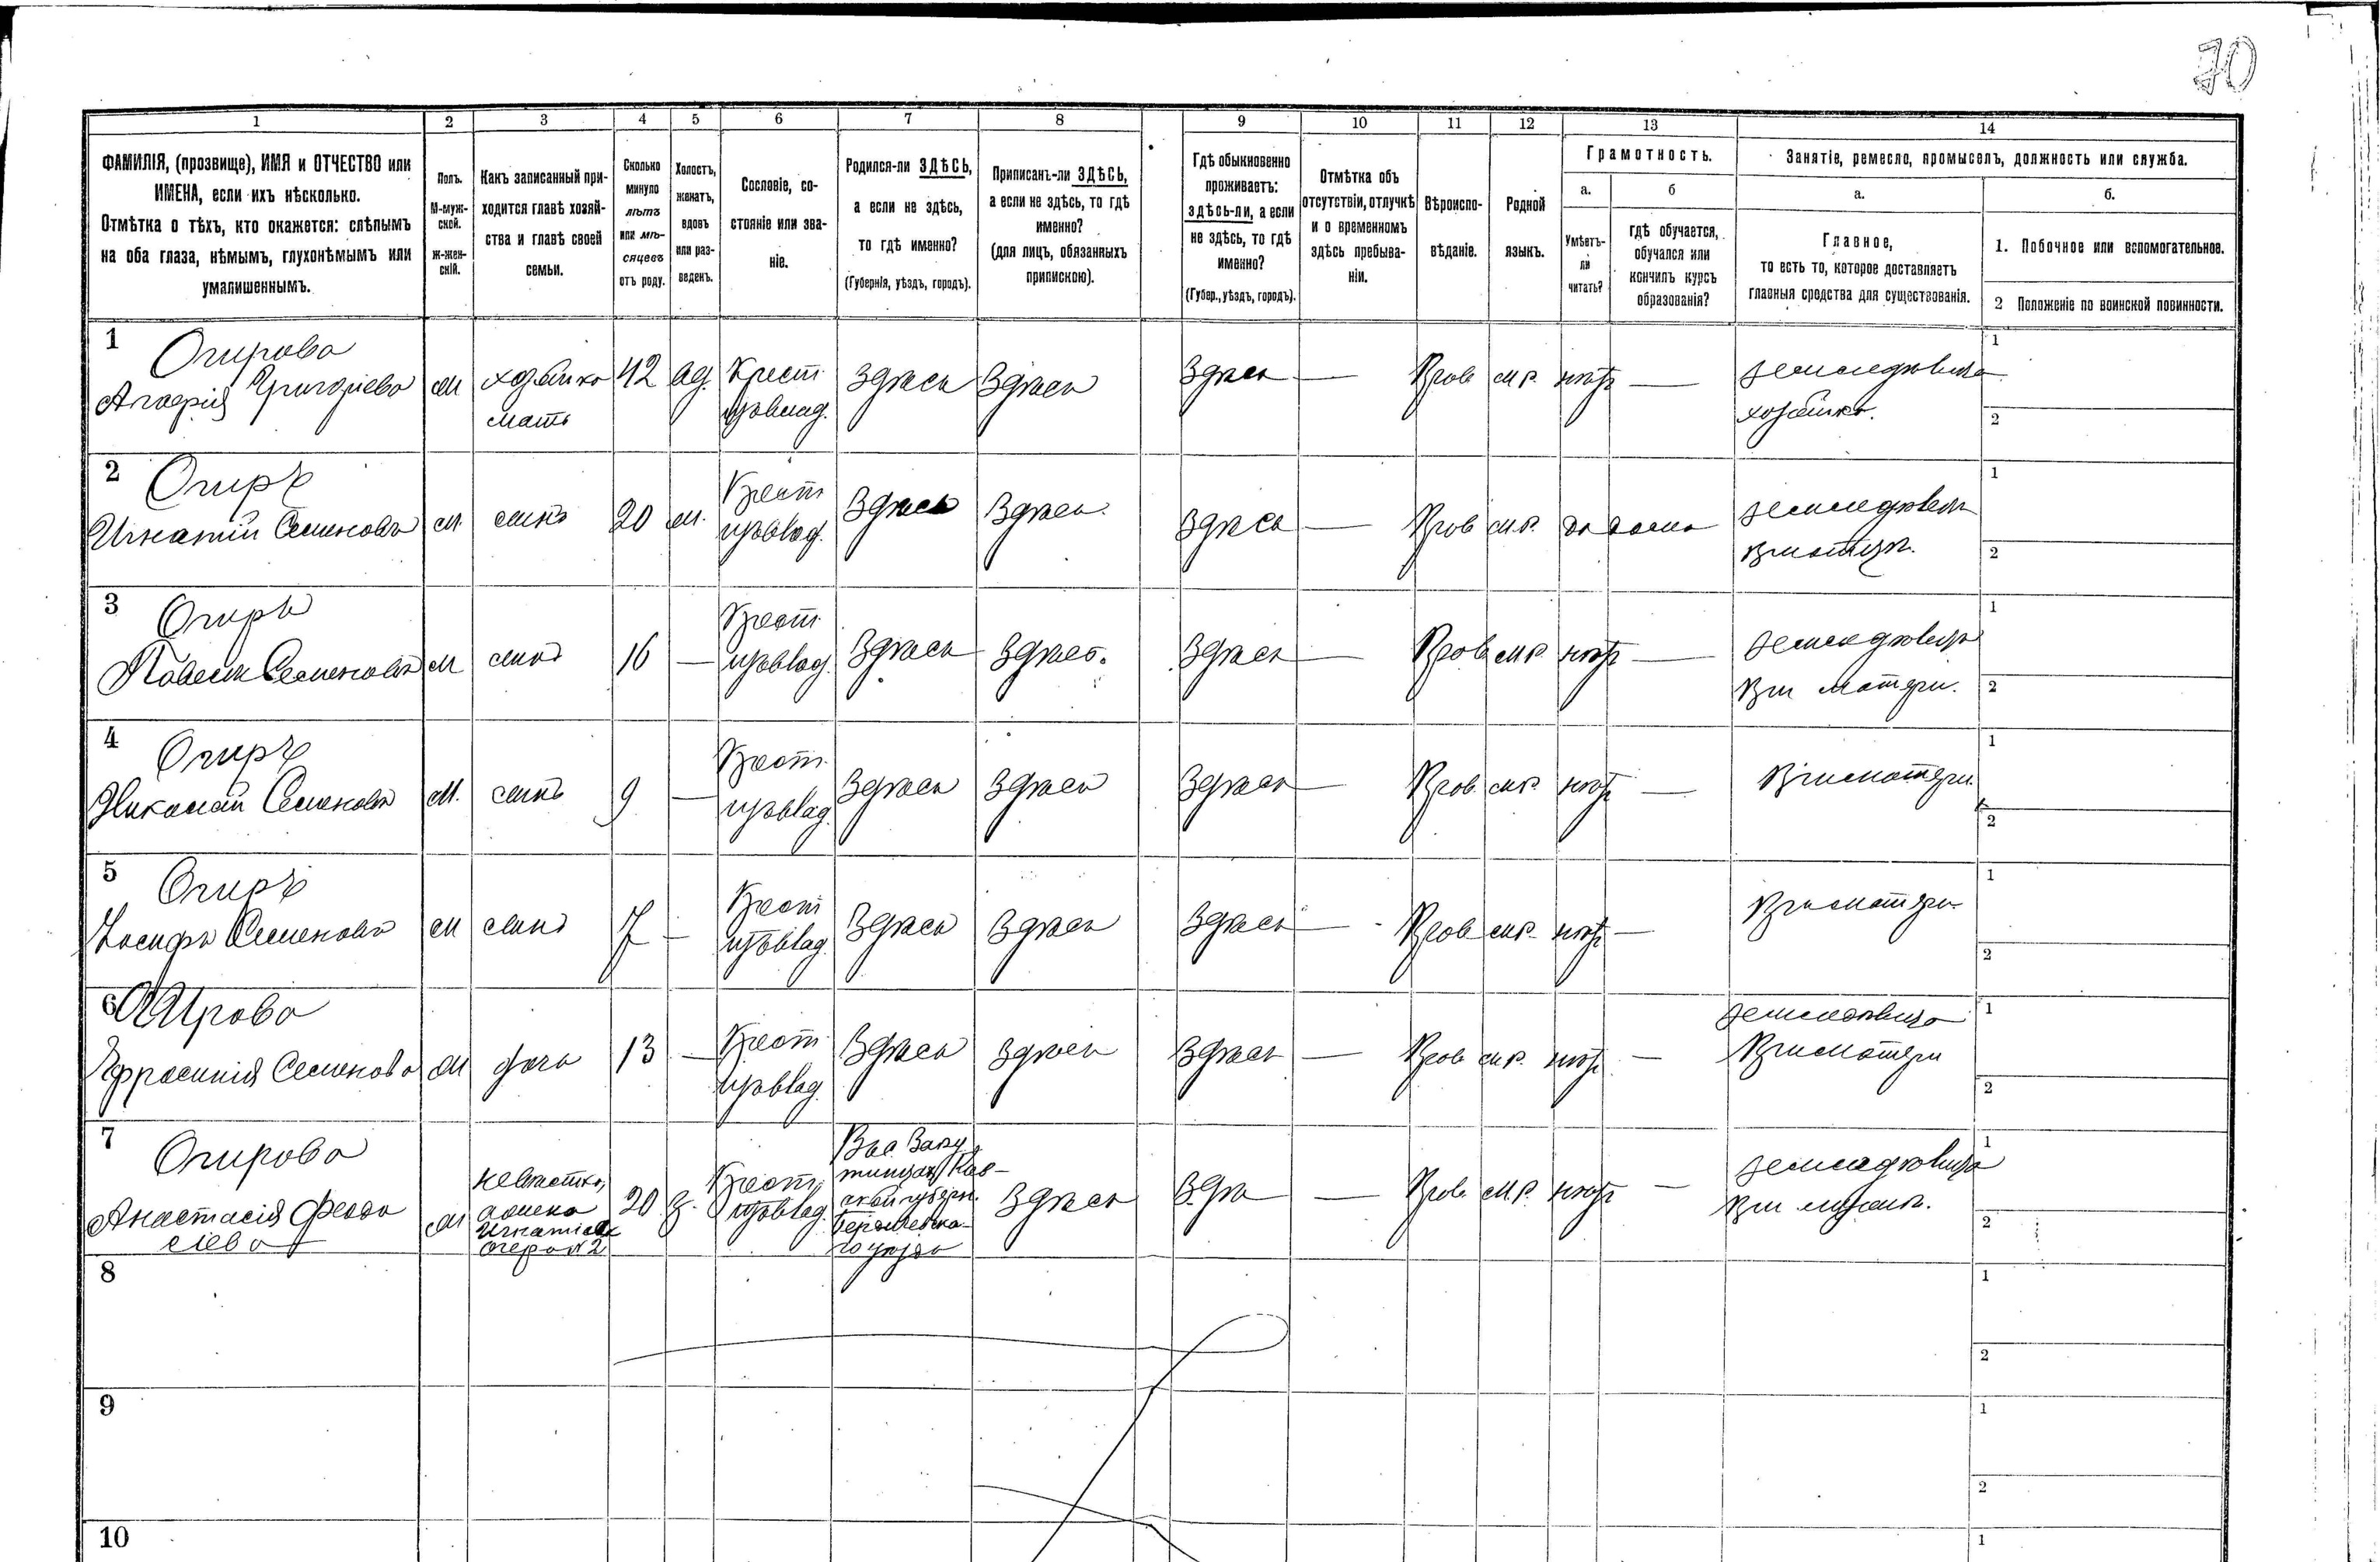 70
1 2 3 4 5 6 7 8 9 10 11 12 13 14
ФАМИЛІЯ, (прозвище), ИМЯ и ОТЧЕСТВО или
ИМЕНА, если ихъ нѣсколько.
Отмѣтка о тѣхъ, кто окажется: слѣпымъ
на оба глаза, нѣмымъ, глухонѣмымъ или
умалишеннымъ.
Полъ.
М-муж-
ской.
ж-жен-
скій.
Какъ записанный при-
ходится главѣ хозяй-
ства и главѣ своей
семьи.
Сколько
минуло
лѣтъ
или мѣ-
сяцевъ
отъ роду.
Холостъ,
женатъ,
вдовъ
или раз-
веденъ.
Сословіе, со-
стояніе или зва-
ніе.
Родился-ли ЗДѢСЬ,
а если не здѣсь,
то гдѣ именно?
(Губернія, уѣздъ, городъ).
Приписанъ-ли ЗДѢСЬ,
а если не здѣсь, то гдѣ
именно?
(для лицъ, обязанныхъ
припискою).
Гдѣ обыкновенно
проживаетъ:
здѣсь-ли, а если
не здѣсь, то гдѣ
именно?
(Губер., уѣздъ, городъ).
Отмѣтка объ
отсутствіи, отлучкѣ
и о временномъ
здѣсь пребыва-
ніи.
Вѣроиспо-
вѣданіе.
Родной
языкъ.
Грамотность.
а.
Умѣетъ-
ли
читать?
б
гдѣ обучается,
обучался или
кончилъ курсъ
образованія?
Занятіе, ремесло, промыселъ, должность или служба.
а.
Главное,
то есть то, которое доставляетъ
главныя средства для существованія.
б.
1. Побочное или вспомогательное.
2 Положеніе по воинской повинности.
1
Огирова
Григоріева
м
хозяйка
мать
42
вд.
Крест
Здѣсь
Здѣсь
Здѣсь
—
Прав
м.р.
нѣт
—
хозяйка.
1
2
2
Огиръ
Игнатій Семеновъ
м.
сынъ
20
Крест
Здѣсь
Здѣсь
Здѣсь
—
Прав
м.р.
да
дома
1
2
3
Огиръ
Павелъ Семеновъ
м
сынъ
16
—
Крест
Здѣсь
Здѣсь.
Здѣсь
—
Прав
м.р.
нѣт
—
При матери.
1
2
4
Огиръ
Николай Семеновъ
м.
сынъ
9
—
Крест
Здѣсь
Здѣсь
Здѣсь
—
Прав.
м.р.
нѣт
—
При матери.
1
2
5
Огиръ
Іосифъ Семеновъ
м
сынъ
7
—
Крест
Здѣсь
Здѣсь
Здѣсь
—
Прав
м.р.
нѣт
—
При матери
1
2
6
Огирова
Ефросинія Семенова
дочь
13
—
Крест
Здѣсь
Здѣсь
Здѣсь
—
Прав
м.р.
нѣт
—
При матери
1
2
7
Огирова
Анастасія Феодо
сіева
невѣстка,
Игнатія
20
Крест
Здѣсь
—
Прав.
м.р.
нѣт
—
При мужѣ.
1
2
8
1
2
9
1
2
10
1